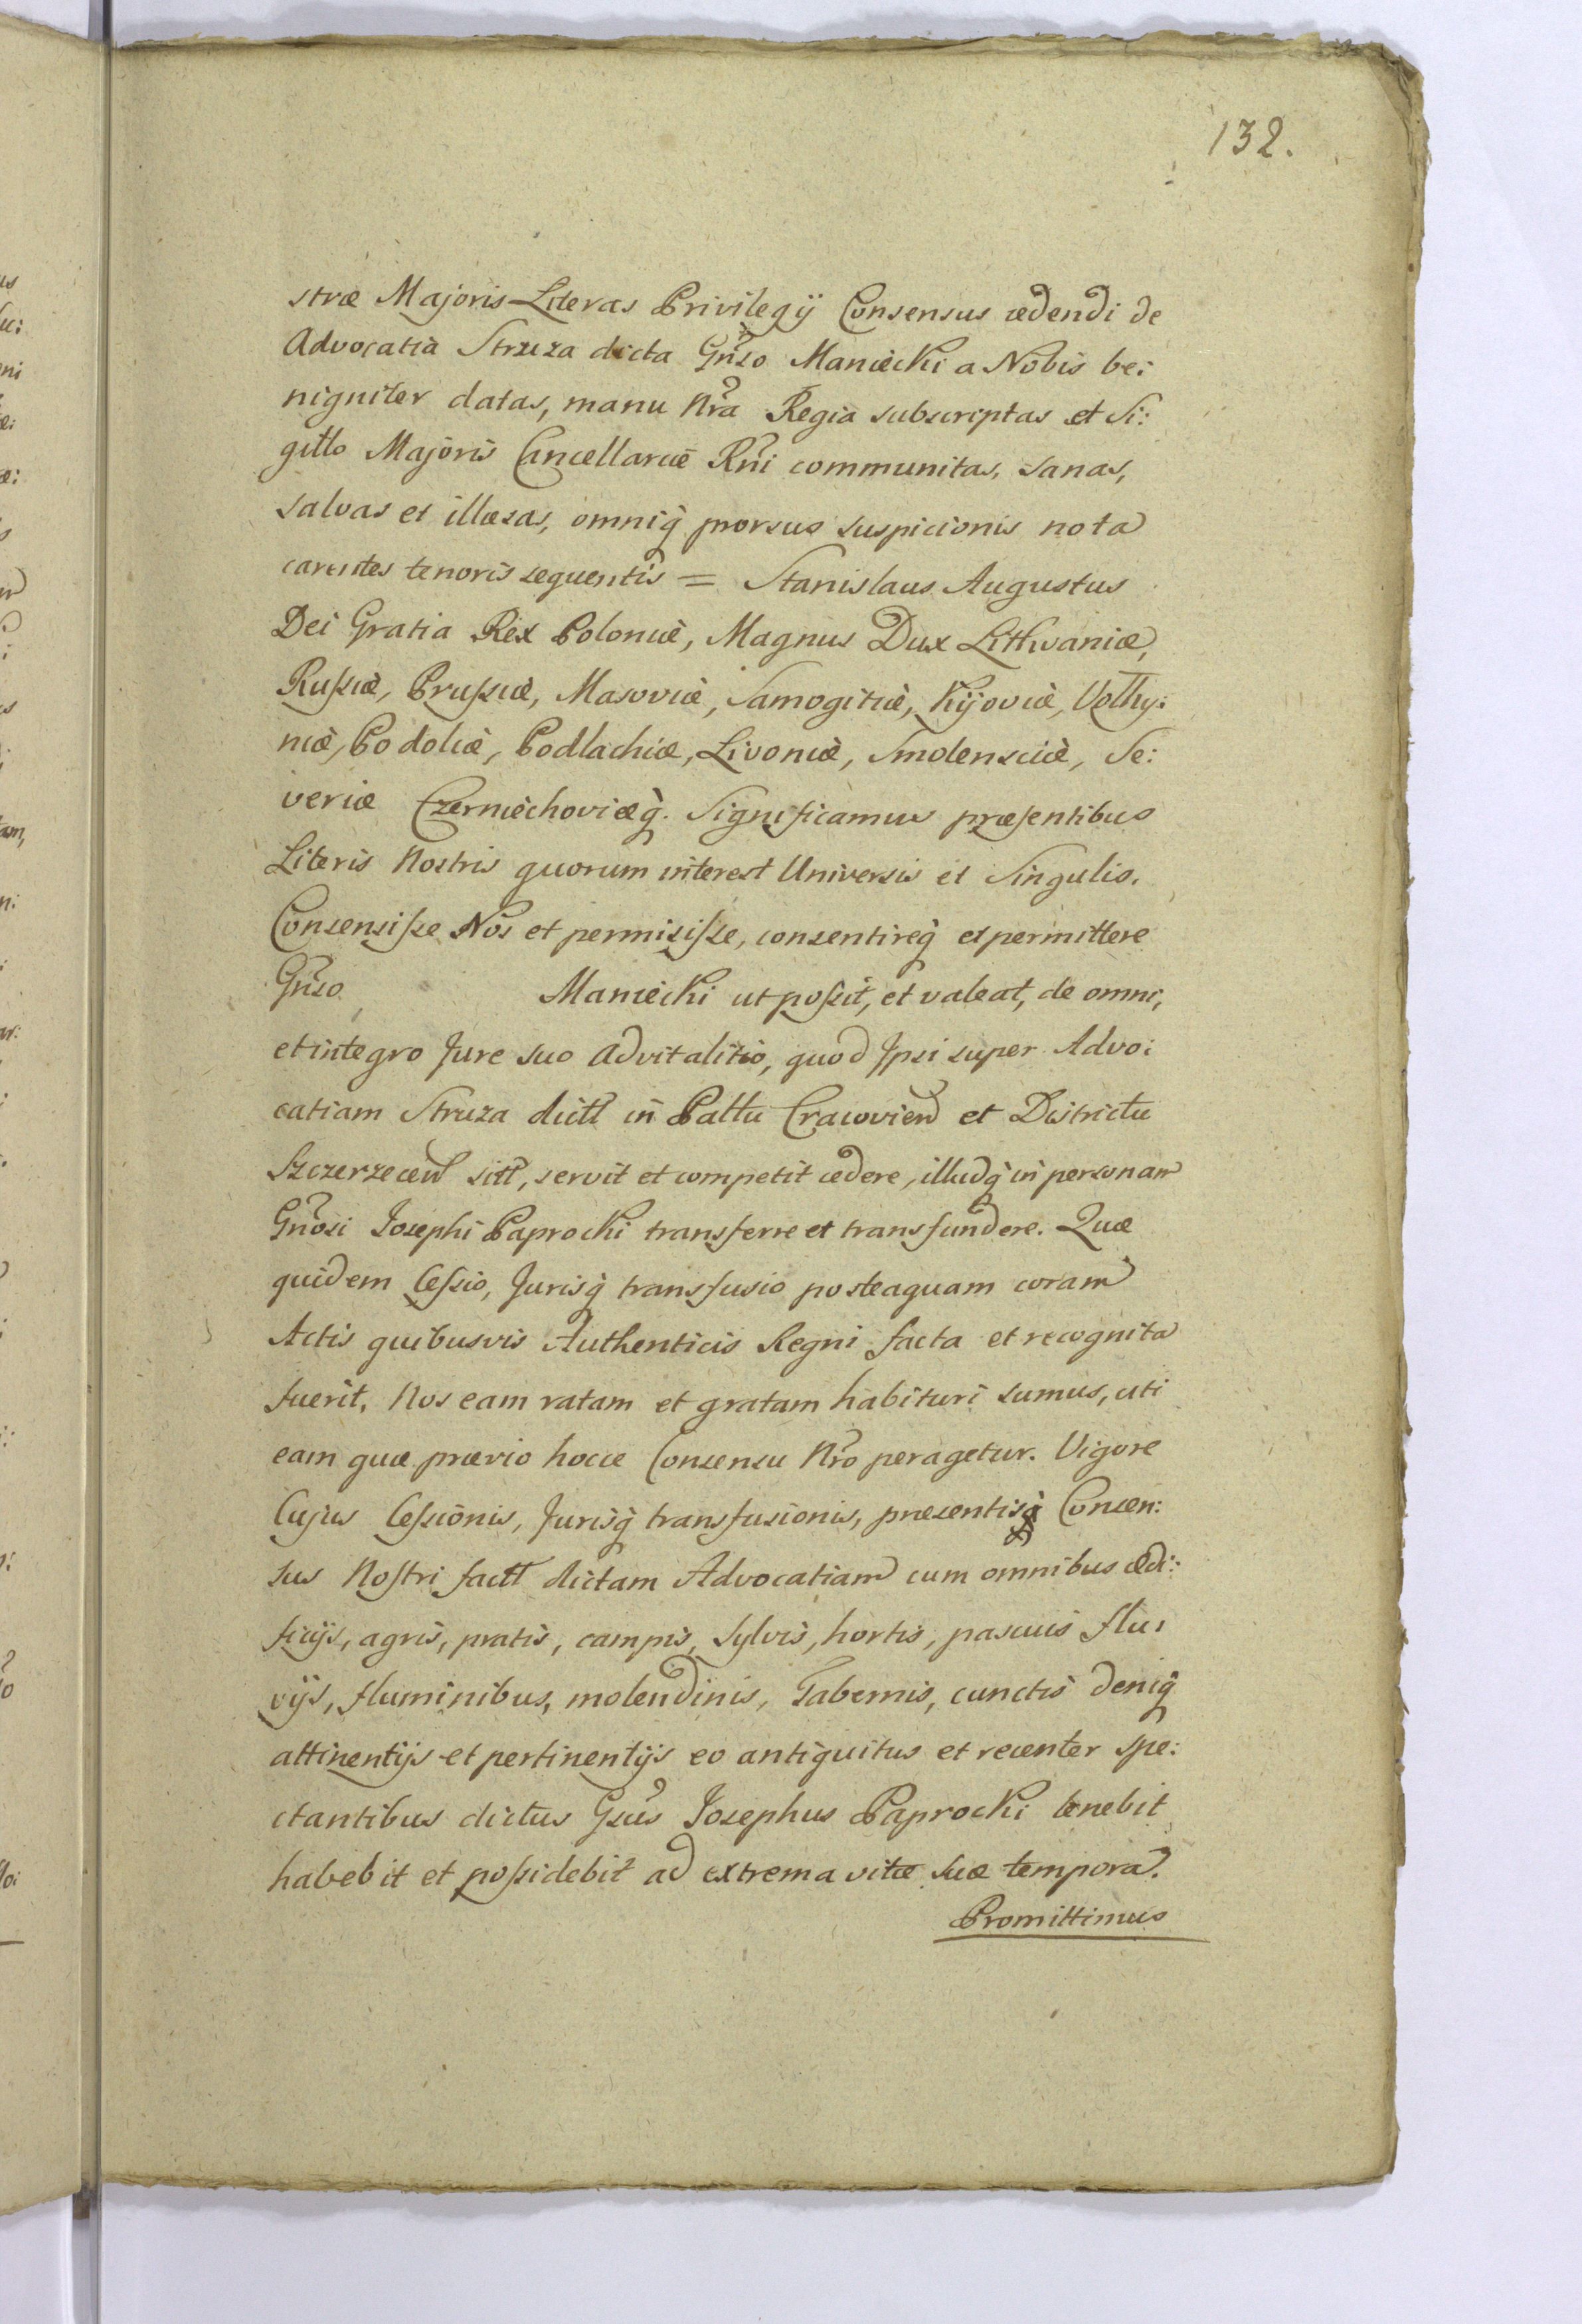 132.
stræ Majoris Literas Privilegij Consensus cedendi de
Advocatia Struza dicta Gñso Maniecki a Nobis be:
nigniter datas, manu Nra Regia subscriptas et Si:
gillo Majoris Cancellariæ Rni communitas, sanas,
salvas et illæsas, omniq̀ prorsus suspicionis nota
carentes tenoris sequentis = Stanislaus Augustus
Dei Gratia Rex Poloniæ, Magnus Dux Lithvaniæ,
Rußiæ, Prußiæ, Masoviæ, Samogitiæ, Kijoviæ, Volhy:
niæ, Podoliæ, Podlachiæ, Livoniæ, Smolensciæ, Se:
veriæ Czerniechoviæq̀. Significamus præsentibus
Literis Nostris quorum interest Universis et Singulis.
Consensiße Nos et permisiße, consentireq̀ et permittere
Gñso Maniecki ut poßit, et valeat, de omni,
et integro Jure suo advitalitio, quod Ipsi super Advo:
catiam Struza dictt in Palttu Cracovien et Districtu
Szczerzecen sitt, servit et competit cedere, illudq̀ in personam
Gnosi Josephi Paprocki transferre et transfundere. Quæ
quidem Ceßio, Jurisq̀ transfusio posteaquam coram
Actis quibusvis Authenticis Regni facta et recognita
fuerit, Nos eam ratam et gratam habituri sumus, uti
eam quæ prævio hocce Consensu Nro peragetur. Vigore
Cujus Ceßionis, Jurisq̀ transfusionis, præsentisq̀ Consen:
sus Nostri factt dictam Advocatiam cum omnibus ædi:
ficijs, agris, pratis, campis, sylvis, hortis, pascuis flu:
vijs, fluminibus, molendinis, Tabernis, cunctis deniq̀
attinentijs et pertinentijs eo antiquitus et recenter spe:
ctantibus dictus Gsus Josephus Paprocki tenebit
habebit et poßidebit ad extrema vitæ suæ tempora.
Promittimus